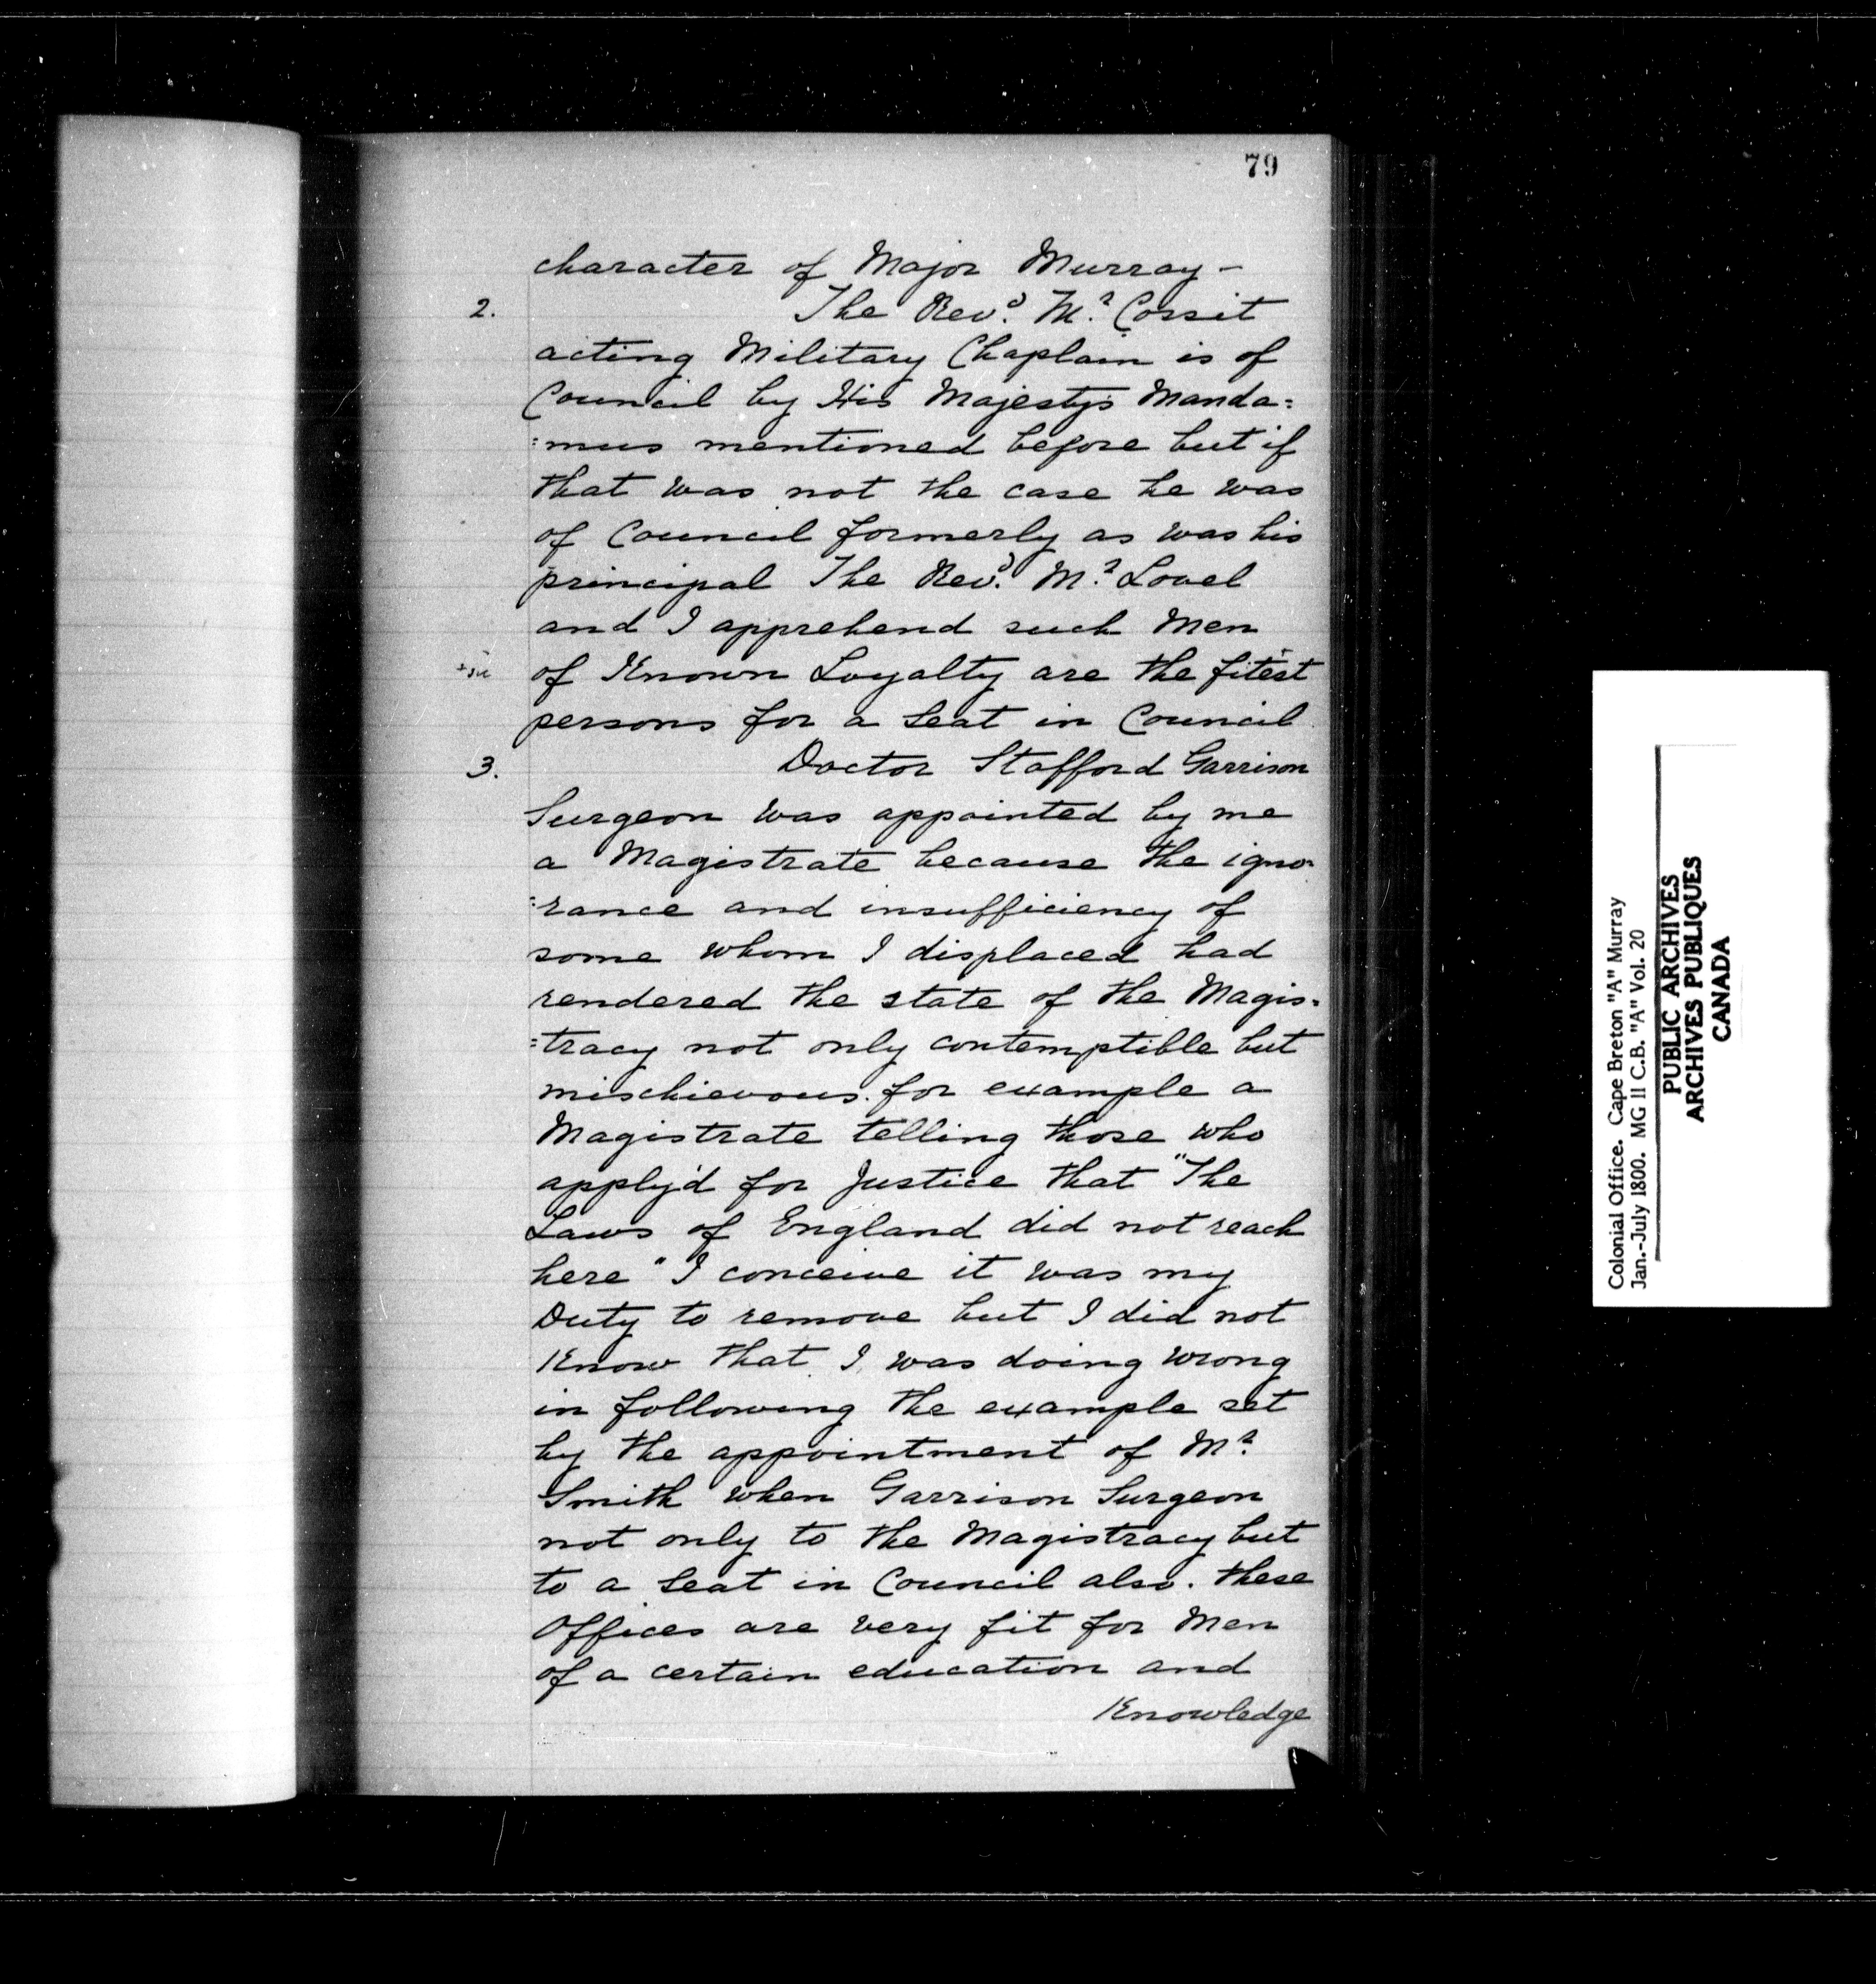 79
character of Major Murray –
2. The Revd. Mr. Cossit
acting Military Chaplain is of
Council by His Majestys Manda=
=mus mentioned before but if
that was not the case he was
of Council formerly as was his
principal The Revd. Mr. Lovel
and I apprehend such Men
+sic of Known Loyalty are the fitest+
persons for a Seat in Council
3. Doctor Stafford Garrison
Surgeon was appointed by me
a Magistrate because the igno=
=rance and insufficiency of
some whom I displaced had
rendered the state of the Magis=
=tracy not only contemptible but
mischievous. for example a
Magistrate telling those who
apply'd for Justice that "The
Laws of England did not reach
here" I conceive it was my
Duty to remove but I did not
Know that I was doing wrong
in following the example set
by the appointment of Mr.
Smith when Garrison Surgeon
not only to the Magistracy but
to a Seat in Council also. these
Offices are very fit for Men
of a certain education and
Knowledge
Colonial Office. Cape Breton "A" Murray
Jan.-July 1800. MG 11 C.B. "A" Vol. 20
PUBLIC ARCHIVES
ARCHIVES PUBLIQUES
CANADA